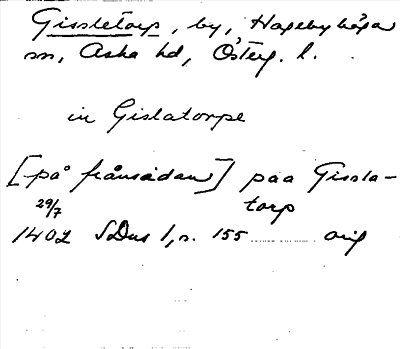 Gissletorp, by, Hagebyhöga
sn, Aska hd, Österg. l.
in Gislatorpe
[på frånsidan] paa Gissla-
torp
29/7
1402 SDns 1, s. 155 ............ orig